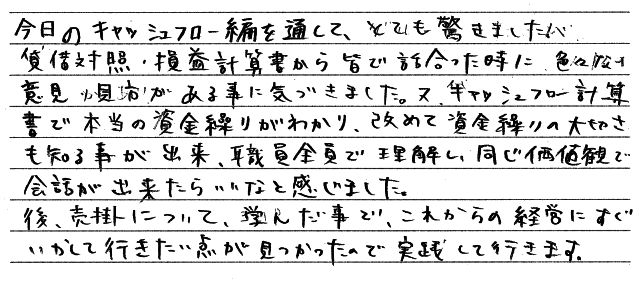 今日のキャッシュフロー編を通して、とても驚きましたが
貸借対照・損益計算書から皆で話合った時に色々な
意見や見方がある事に気づきました。又、キャッシュフロー計算
書で本当の資金繰りがわかり、改めて資金繰りの大切さ
も知る事が出来、職員全員で理解し、同じ価値観で
会話が出来たらいいなと感じました。
後、売掛について、学んだ事で、これからの経営にすぐ
いかして行きたい点が見つかったので実践して行きます。